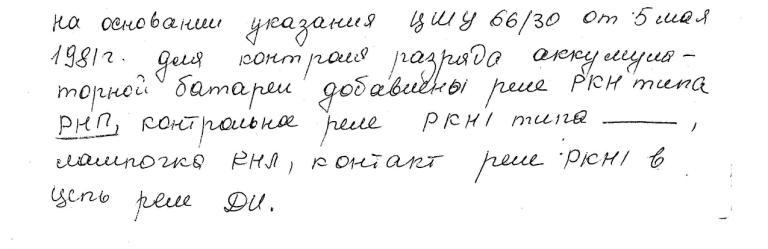 на основании указания ЦШУ 66/30 от 5 мая
1981г. для контроля разряда аккумуля-
торной батареи добавлены реле РКН типа
РНП, контрольное реле РКН1 типа ——,
лампочка КНЛ, контакт реле РКН1 в
цепь реле ДИ.